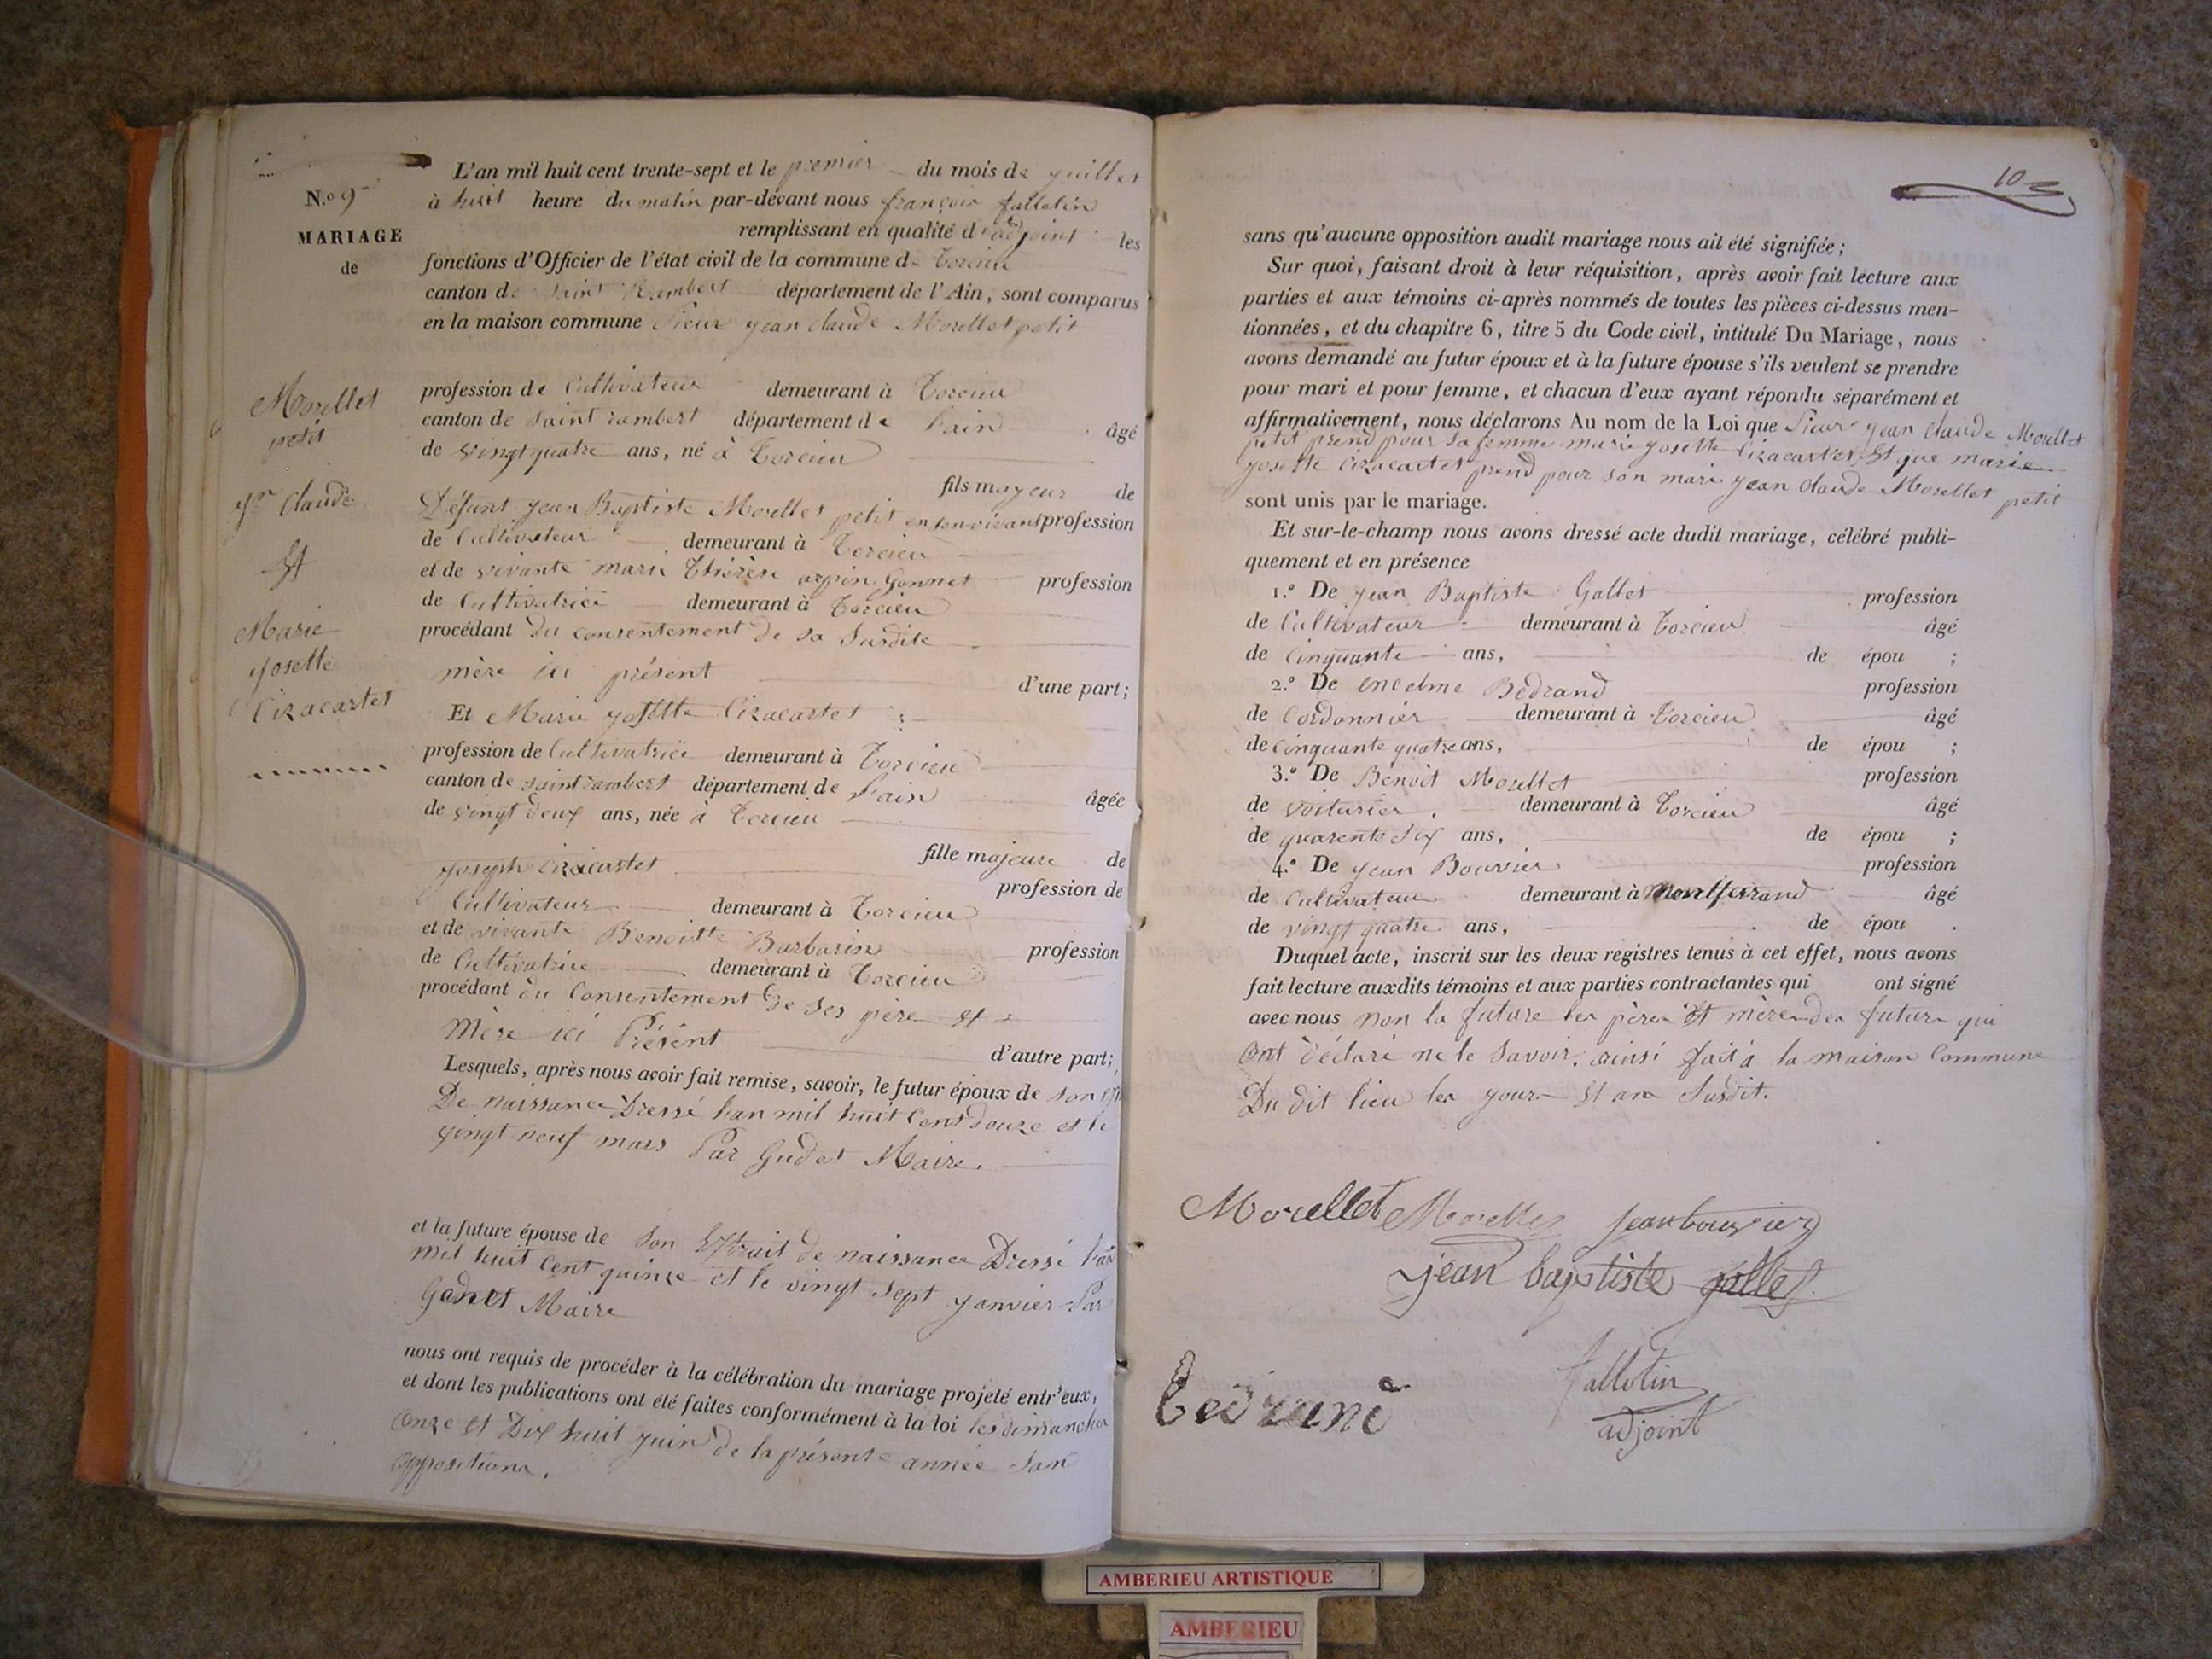 N.o 9
MARIAGE
de
Morellet
petit
jn Claude
Et
Marie
josette
Cizacartet
L'an mil huit cent trente-sept et le premier du mois de juillet
à huit heure du matin par-devant nous françois fallotin
remplissant en qualité d'adjoint les
fonctions d'Officier de l'état civil de la commune de Torcieu
canton de Saint Rambert département de l'Ain, sont comparus
en la maison commune Sieur jean claude Morellet petit
profession de Cultivateur demeurant à Torcieu
canton de Saint rambert département de l'ain âgé
de vingt quatre ans, né à Torcieu
fils majeur de
Défunt jean Baptiste Morellet petit en son vivant profession
de Cultivateur demeurant à Torcieu
et de vivante marie Thérèse arpin Gonnet profession
de Cultivatrice demeurant à Torcieu
procédant du consentement de sa Susdite
mère ici présent d'une part;
Et Marie josette Cizacartet
profession de Cultivatrice demeurant à Torcieu
canton de saint rambert département de l'ain âgée
de vingt deux ans, née à Torcieu
fille majeure de
joseph Cizacartet profession de
Cultivateur demeurant à Torcieu
et de vivante Benoitte Barbarin profession
de Cultivatrice demeurant à Torcieu
procédant du Consentement de ses père et
Mère ici Présent d'autre part;
Lesquels, après nous avoir fait remise, savoir, le futur époux de son
De naissance Dressé l'an mil huit Cent douze et le
vingt neuf mars Par Gudet Maire.
et la future épouse de Son Extrait de naissance Dressé l'an
mil huit Cent quinze et le vingt Sept janvier Par
Gudet Maire
nous ont requis de procéder à la célébration du mariage projeté entr'eux,
et dont les publications ont été faites conformément à la loi les dimanches
Onze et Dix huit juin de la présente année San
oppositions.
10
sans qu'aucune opposition audit mariage nous ait été signifiée;
Sur quoi, faisant droit à leur réquisition, après avoir fait lecture aux
parties et aux témoins ci-après nommés de toutes les pièces ci-dessus men-
tionnées, et du chapitre 6, titre 5 du Code civil, intitulé Du Mariage, nous
avons demandé au futur époux et à la future épouse s'ils veulent se prendre
pour mari et pour femme, et chacun d'eux ayant répondu séparément et
affirmativement, nous déclarons Au nom de la Loi que Sieur jean claude Morellet
petit prend pour sa femme marie josette Cizacartet, Et que marie
josette Cizacartet prend pour son mari jean claude Morellet petit
sont unis par le mariage.
Et sur-le-champ nous avons dressé acte dudit mariage, célébré publi-
quement et en présence
1.o De jean Baptiste Gallet profession
de Cultivateur demeurant à Torcieu âgé
de Cinquante ans, de épou ;
2.o De Enselme Bedrand profession
de Cordonnier demeurant à Torcieu âgé
de Cinquante quatre ans, de épou ;
3.o De Benoit Morellet profession
de voiturier demeurant à Torcieu âgé
de quarente Six ans, de épou ;
4.o De jean Bouvier profession
de Cultivateur demeurant à Montferrand âgé
de vingt quatre ans, de épou .
Duquel acte, inscrit sur les deux registres tenus à cet effet, nous avons
fait lecture auxdits témoins et aux parties contractantes qui ont signé
avec nous non la future les pères Et mères des futurs qui
Ont déclaré ne le Savoir. ainsi fait à la maison Commune
Du dit lieu les jours Et an Susdit.
Morellet Morellet jean bouvier
jean baptiste gallet
bedrand
fallotin
adjoint
AMBERIEU ARTISTIQUE
AMBERIEU